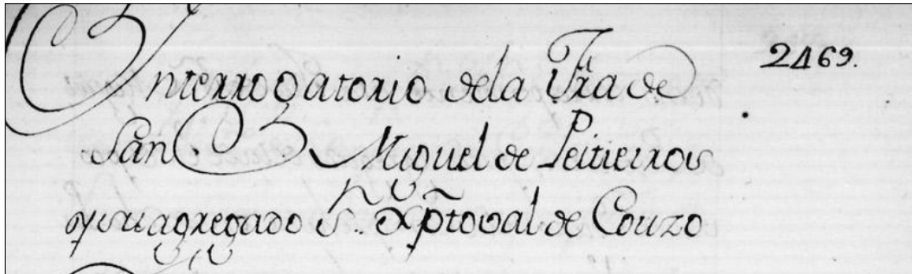 Interrogatorio dela Fra de 2469.
San Miguel de Peitieiros
y su agregado S. Xptoval de Couzo